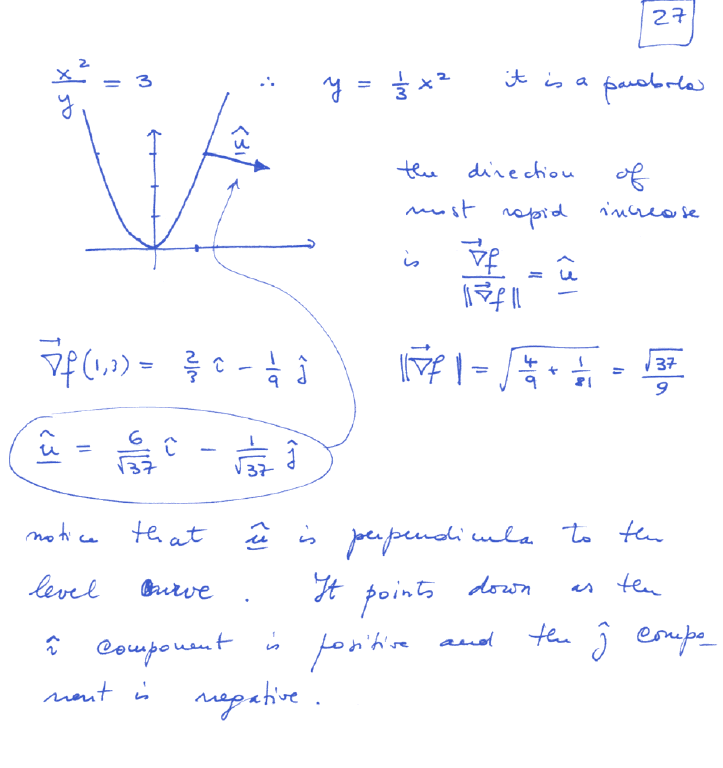 27
x²/y = 3 ∴ y = 1/3 x² it is a parabola
û
the direction of
most rapid increase
is ∇⃗f / ||∇⃗f|| = û
∇⃗f(1,3) = 2/3 î − 1/9 ĵ ||∇⃗f| = √(4/9 + 1/81) = √37/9
û = 6/√37 î − 1/√37 ĵ
notice that û is perpendicula to the
level curve . It points down as the
î component is positive and the ĵ compo_
nent is negative .